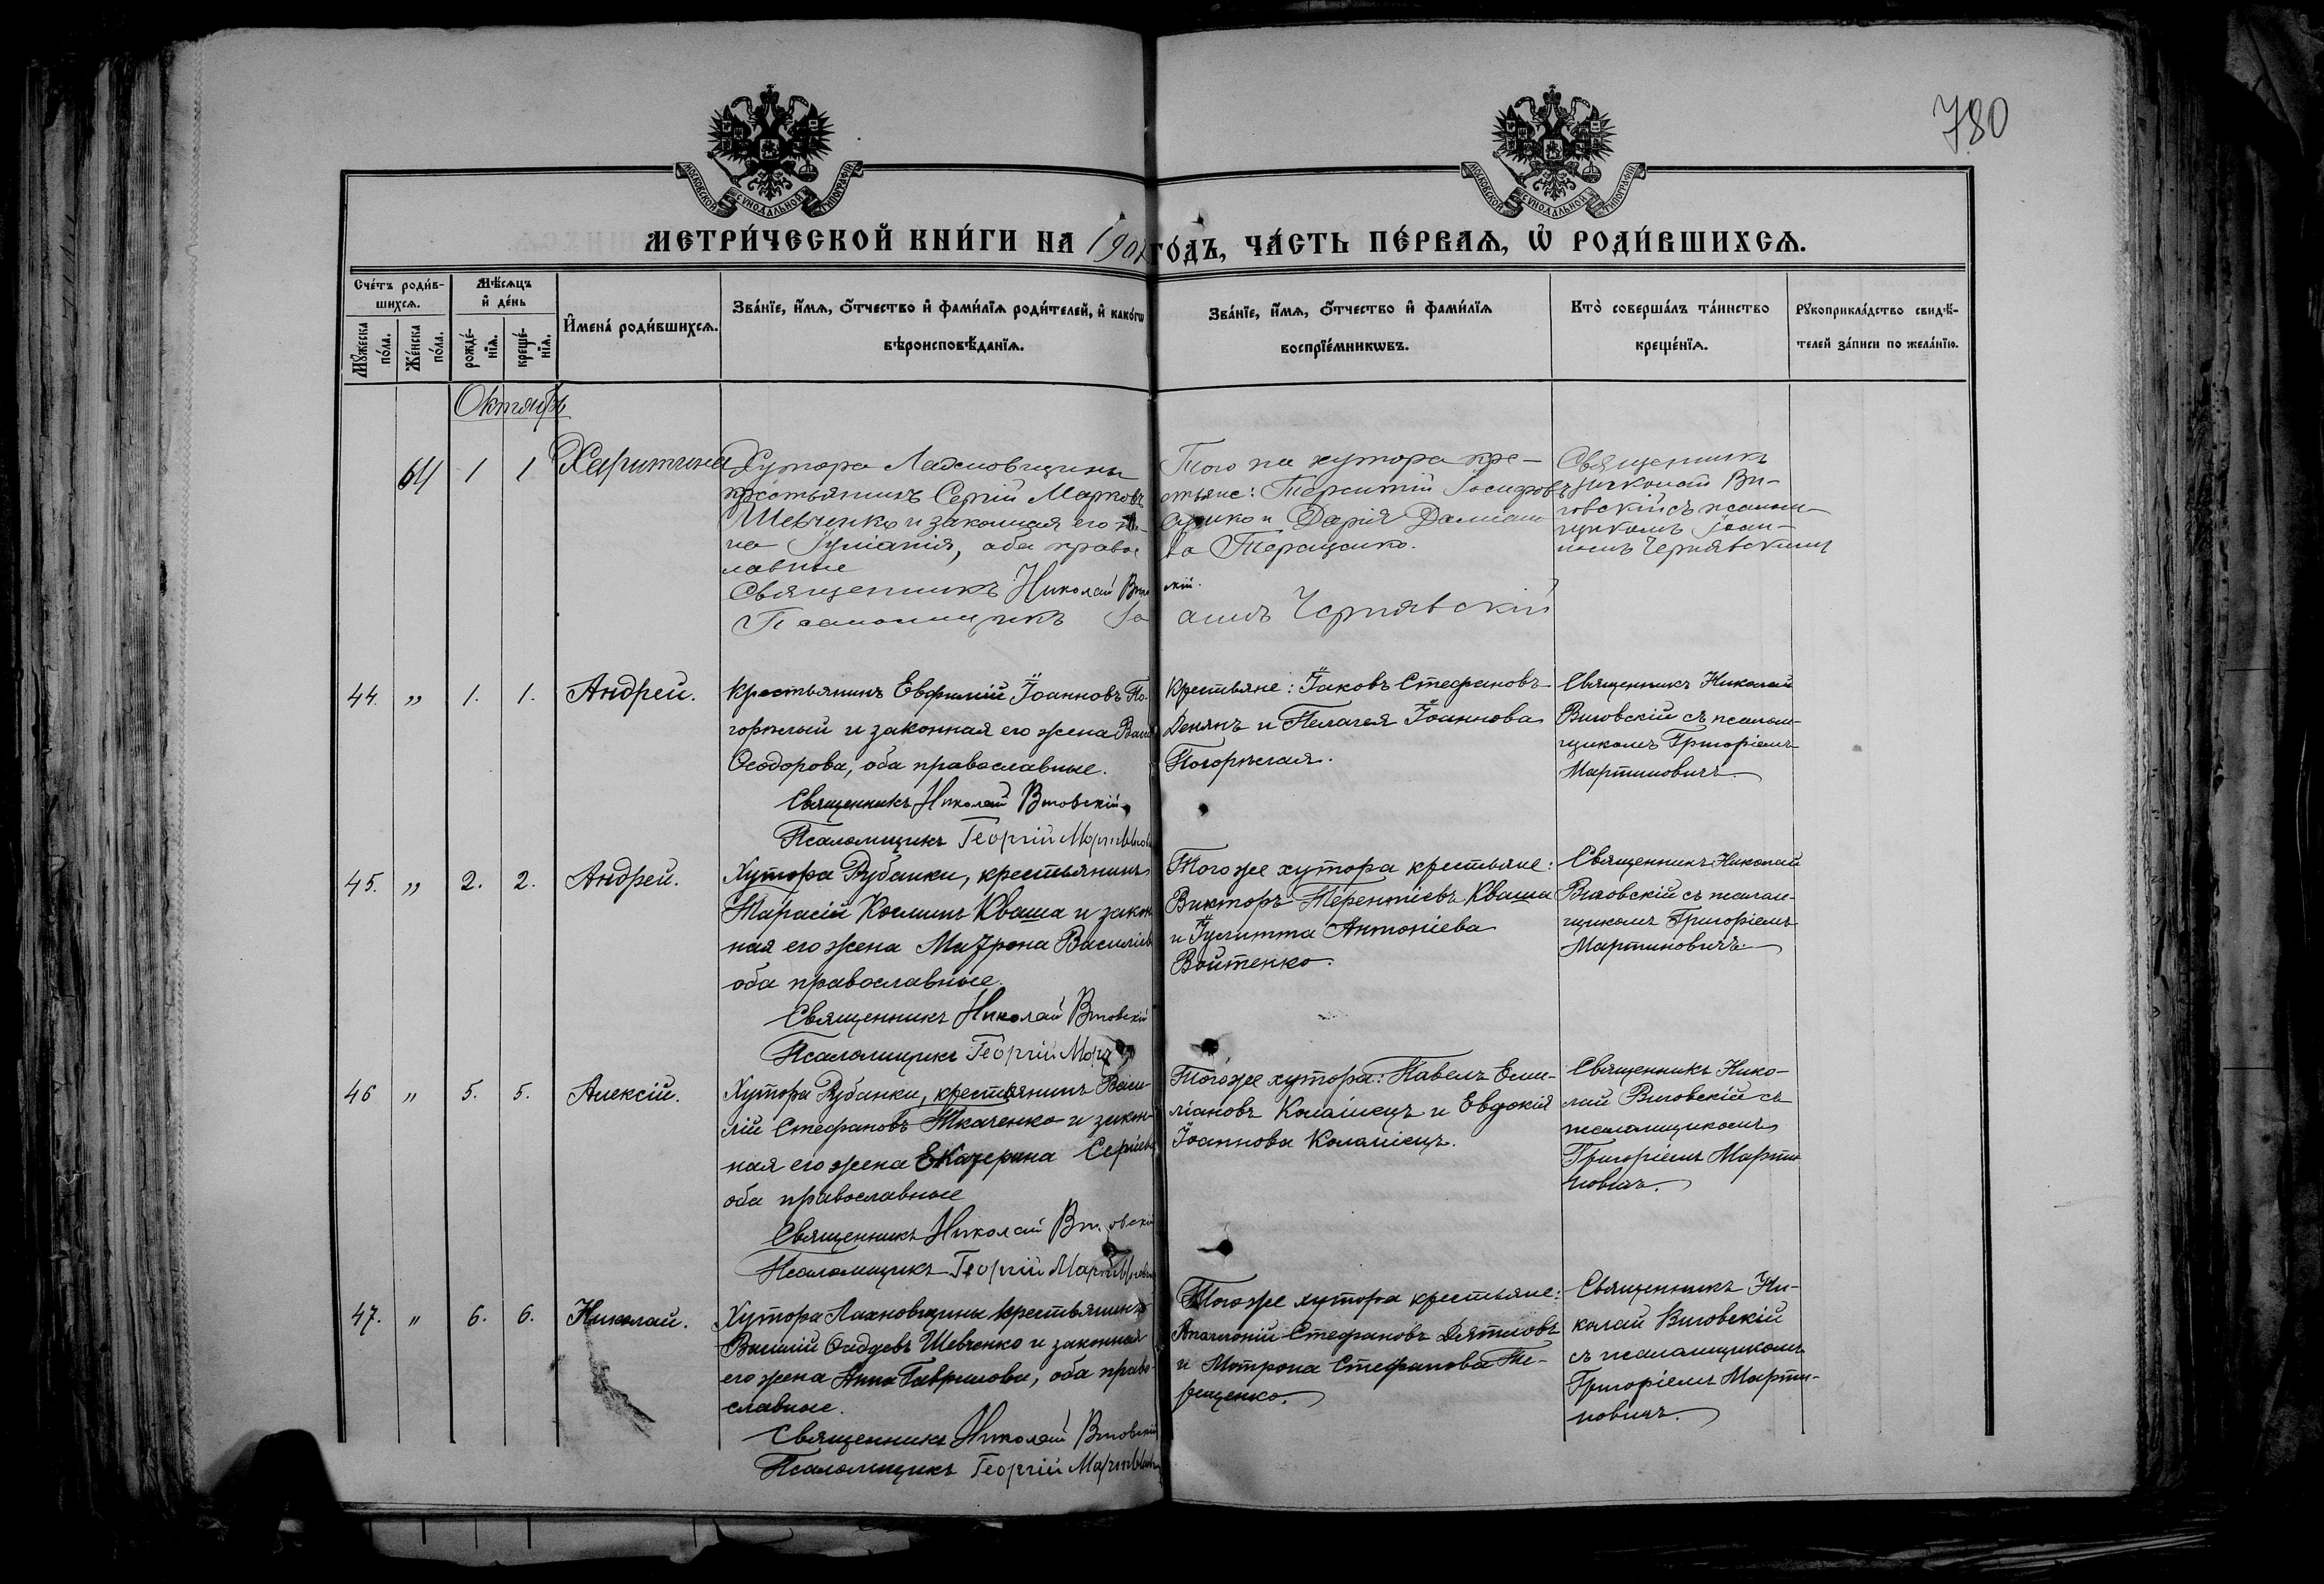 780
МОСКОВСКОЙ СѴНОДАЛЬНОЙ ТИПОГРАФІИ.
МОСКОВСКОЙ СѴНОДАЛЬНОЙ ТИПОГРАФІИ.
МЕТРИ́ЧЕСКОЙ КНИ́ГИ НА 190 ГО́ДЪ, ЧА́СТЬ ПЕ́РВАѦ, Ѡ҆ РОДИ́ВШИХСѦ.
Сче́тъ роди́в-
шихсѧ.
Мꙋ́жеска по́ла.
Же́нска по́ла.
Мѣ́сѧцъ
и҆ де́нь
рожде́-
нїѧ.
креще́-
нїѧ.
И҆мена̀ роди́вшихсѧ.
Зва́нїе, и҆́мѧ, ѻ҆́тчество и҆ фами́лїѧ роди́телей, и҆ како́гѡ
вѣроисповѣ́данїѧ.
Зва́нїе, и҆́мѧ, ѻ҆́тчество и҆ фами́лїѧ
воспрїе́мникѡвъ.
Кто̀ соверша́лъ та́инство
креще́нїѧ.
Рꙋкоприкла́дство свидѣ́-
телей за́писи по жела́нїю.
Октябрь
64 1 1 Харитина
Хутора Лахновщины
крестьянинъ Сергій Марковъ
Шевченко и законная его же-
на Іуліанія, оба право
славные
Священникъ Николай
Псаломщикъ Іо
хутора кре-
стьяне: Терентій Іосифовъ
и Дарія Даміано
ва Терещенко.
скій.
аннъ Чернявскій
Священникъ
Николай Ви-
говскій съ псалом-
щикомъ Іоан-
номъ Чернявскимъ
44. „ 1. 1. Андрей.
Крестьянинъ Евфимій Іоанновъ По-
горѣлый и законная его жена
Ѳеодорова, оба православные.
Священникъ Николай Виговскій
Псаломщикъ Георгій
Крестьяне: Іаковъ Стефановъ
и Пелагея Іоаннова
Погорѣлая.
Священникъ Николай
Виговскій съ псалом-
щикомъ Григоріемъ
Мартиновичъ
45. „ 2. 2. Андрей.
Хутора Рубанки, крестьянинъ
Тарасій Косминъ Кваша и закон
ная его жена Матрона Василіев
оба православные.
Священникъ Николай Виговскій
Псаломщикъ Георгій
Того же хутора крестьяне:
Викторъ Терентіевъ Кваша
и Іулитта Антоніева
Войтенко.
Священникъ Николай
Виговскій съ псалом-
щикомъ Григоріемъ
Мартиновичъ.
46 „ 5. 5. Алексій.
Хутора Рубанки, крестьянинъ Васи-
лій Стефановъ Ткаченко и закон-
ная его жена Екатерина Сергіева
оба православные
Священникъ Николай Виговскій
Псаломщикъ Георгій
Того же хутора: Павелъ Еми-
ліановъ Коломіецъ и Евдокія
Іоаннова Коломіецъ.
Священникъ Нико-
лай Виговскій съ
псаломщикомъ
Григоріемъ Марти
новичъ.
47. „ 6. 6. Николай.
Хутора Лахновщины крестьянинъ
Василій Шевченко и законная
его жена Анна Гаврилова, оба право-
славные.
Священникъ Николай Виговскій
Псаломщикъ Георгій
Того же хутора крестьяне:
Стефановъ Дятловъ
и Мотрона Стефанова Те-
рещенко.
Священникъ Ни-
колай Виговскій
съ псаломщикомъ
Григоріемъ Марти-
новичъ.